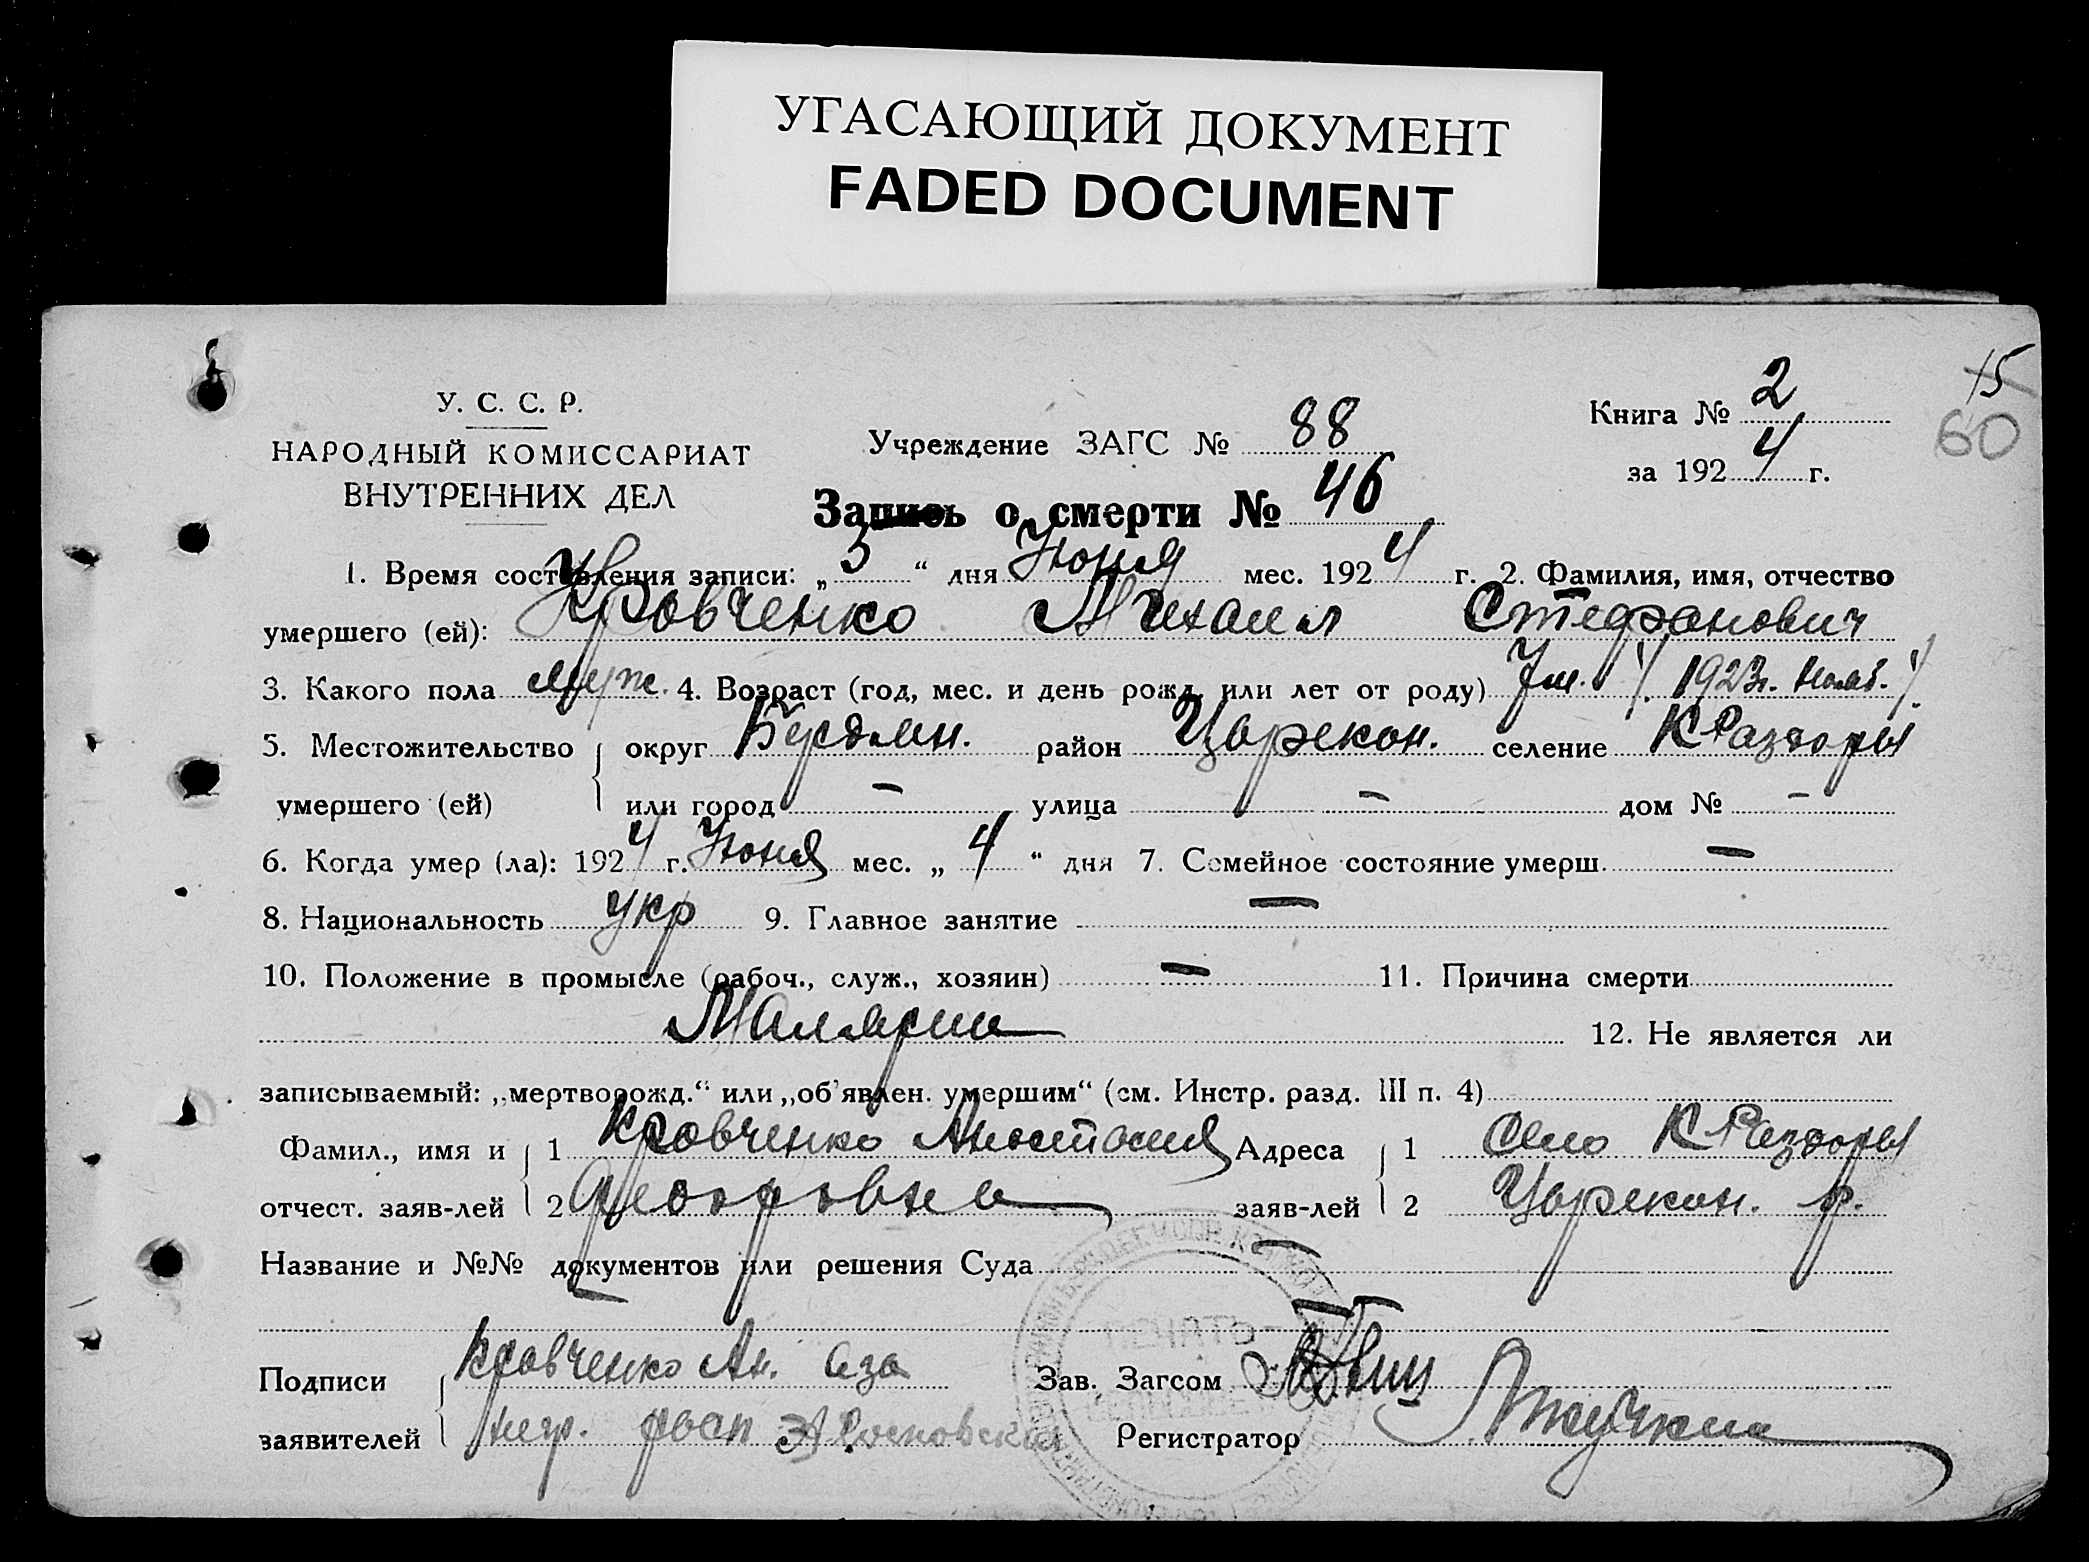 УГАСАЮЩИЙ ДОКУМЕНТ
FADED DOCUMENT
15
60
У. С. С. Р.
НАРОДНЫЙ КОМИССАРИАТ
ВНУТРЕННИХ ДЕЛ
Учреждение ЗАГС № 88
Книга № 2
за 1924 г.
Запись о смерти № 46
1. Время составления записи: „5“ дня Июня мес. 1924 г. 2. Фамилия, имя, отчество
умершего (ей): Кравченко Михаил Стефанович
3. Какого пола муж. 4. Возраст (год, мес. и день рожд. или лет от роду) 7 м. 1923 г. Нояб.
5. Местожительство округ Бердян. район Царекон. селение К Раздоры
умершего (ей) или город — улица — дом № —
6. Когда умер (ла): 1924 г. Июня мес. „4“ дня 7. Семейное состояние умерш. —
8. Национальность укр 9. Главное занятие —
10. Положение в промысле (рабоч., служ., хозяин) — 11. Причина смерти
Малярии 12. Не является ли
записываемый: „мертворожд.“ или „об'явлен. умершим“ (см. Инстр. разд. III п. 4)
Фамил., имя и 1 Кравченко Анастасия Адреса 1 Село К Раздоры
отчест. заяв-лей 2 Федоровна заяв-лей 2 Царекон. р.
Название и №№ документов или решения Суда —
Подписи Кравченко Ан. аза Зав. Загсом
заявителей негр. расп Регистратор
ПЕЧАТЬ